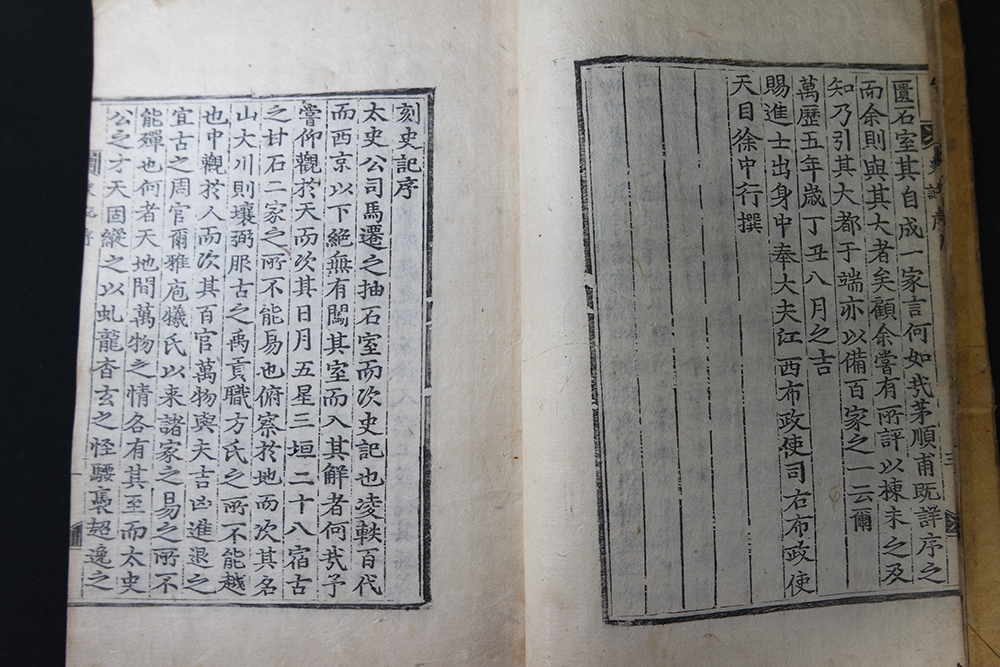 匱石室其自成一家言何如㢤茅順甫既詳序之
而余則與其大者矣顧余嘗有所評以棟未之及
知乃引其大都于端亦以備百家之一云爾
萬歷五年歲丁丑八月之吉
賜進士出身中奉大夫江西布政使司右布政使
天目徐中行撰
刻史記序
太史公司馬遷之抽石室而次史記也凌軼百代
而西京以下絕無有闖其室而入其解者何㢤予
嘗仰觀於天而次其日月五星三垣二十八宿古
之甘石二家之所不能易也俯察於地而次其名
山大川則壤弼服古之禹貢職方氏之所不能越
也中觀於人而次其百官萬物與夫吉凶進退之
宜古之周官爾雅庖犧氏以来諸家之易之所不
能殫也何者天地間萬物之情各有其至而太史
公之才天固縱之以虬龍杳玄之怪騕褭超逸之